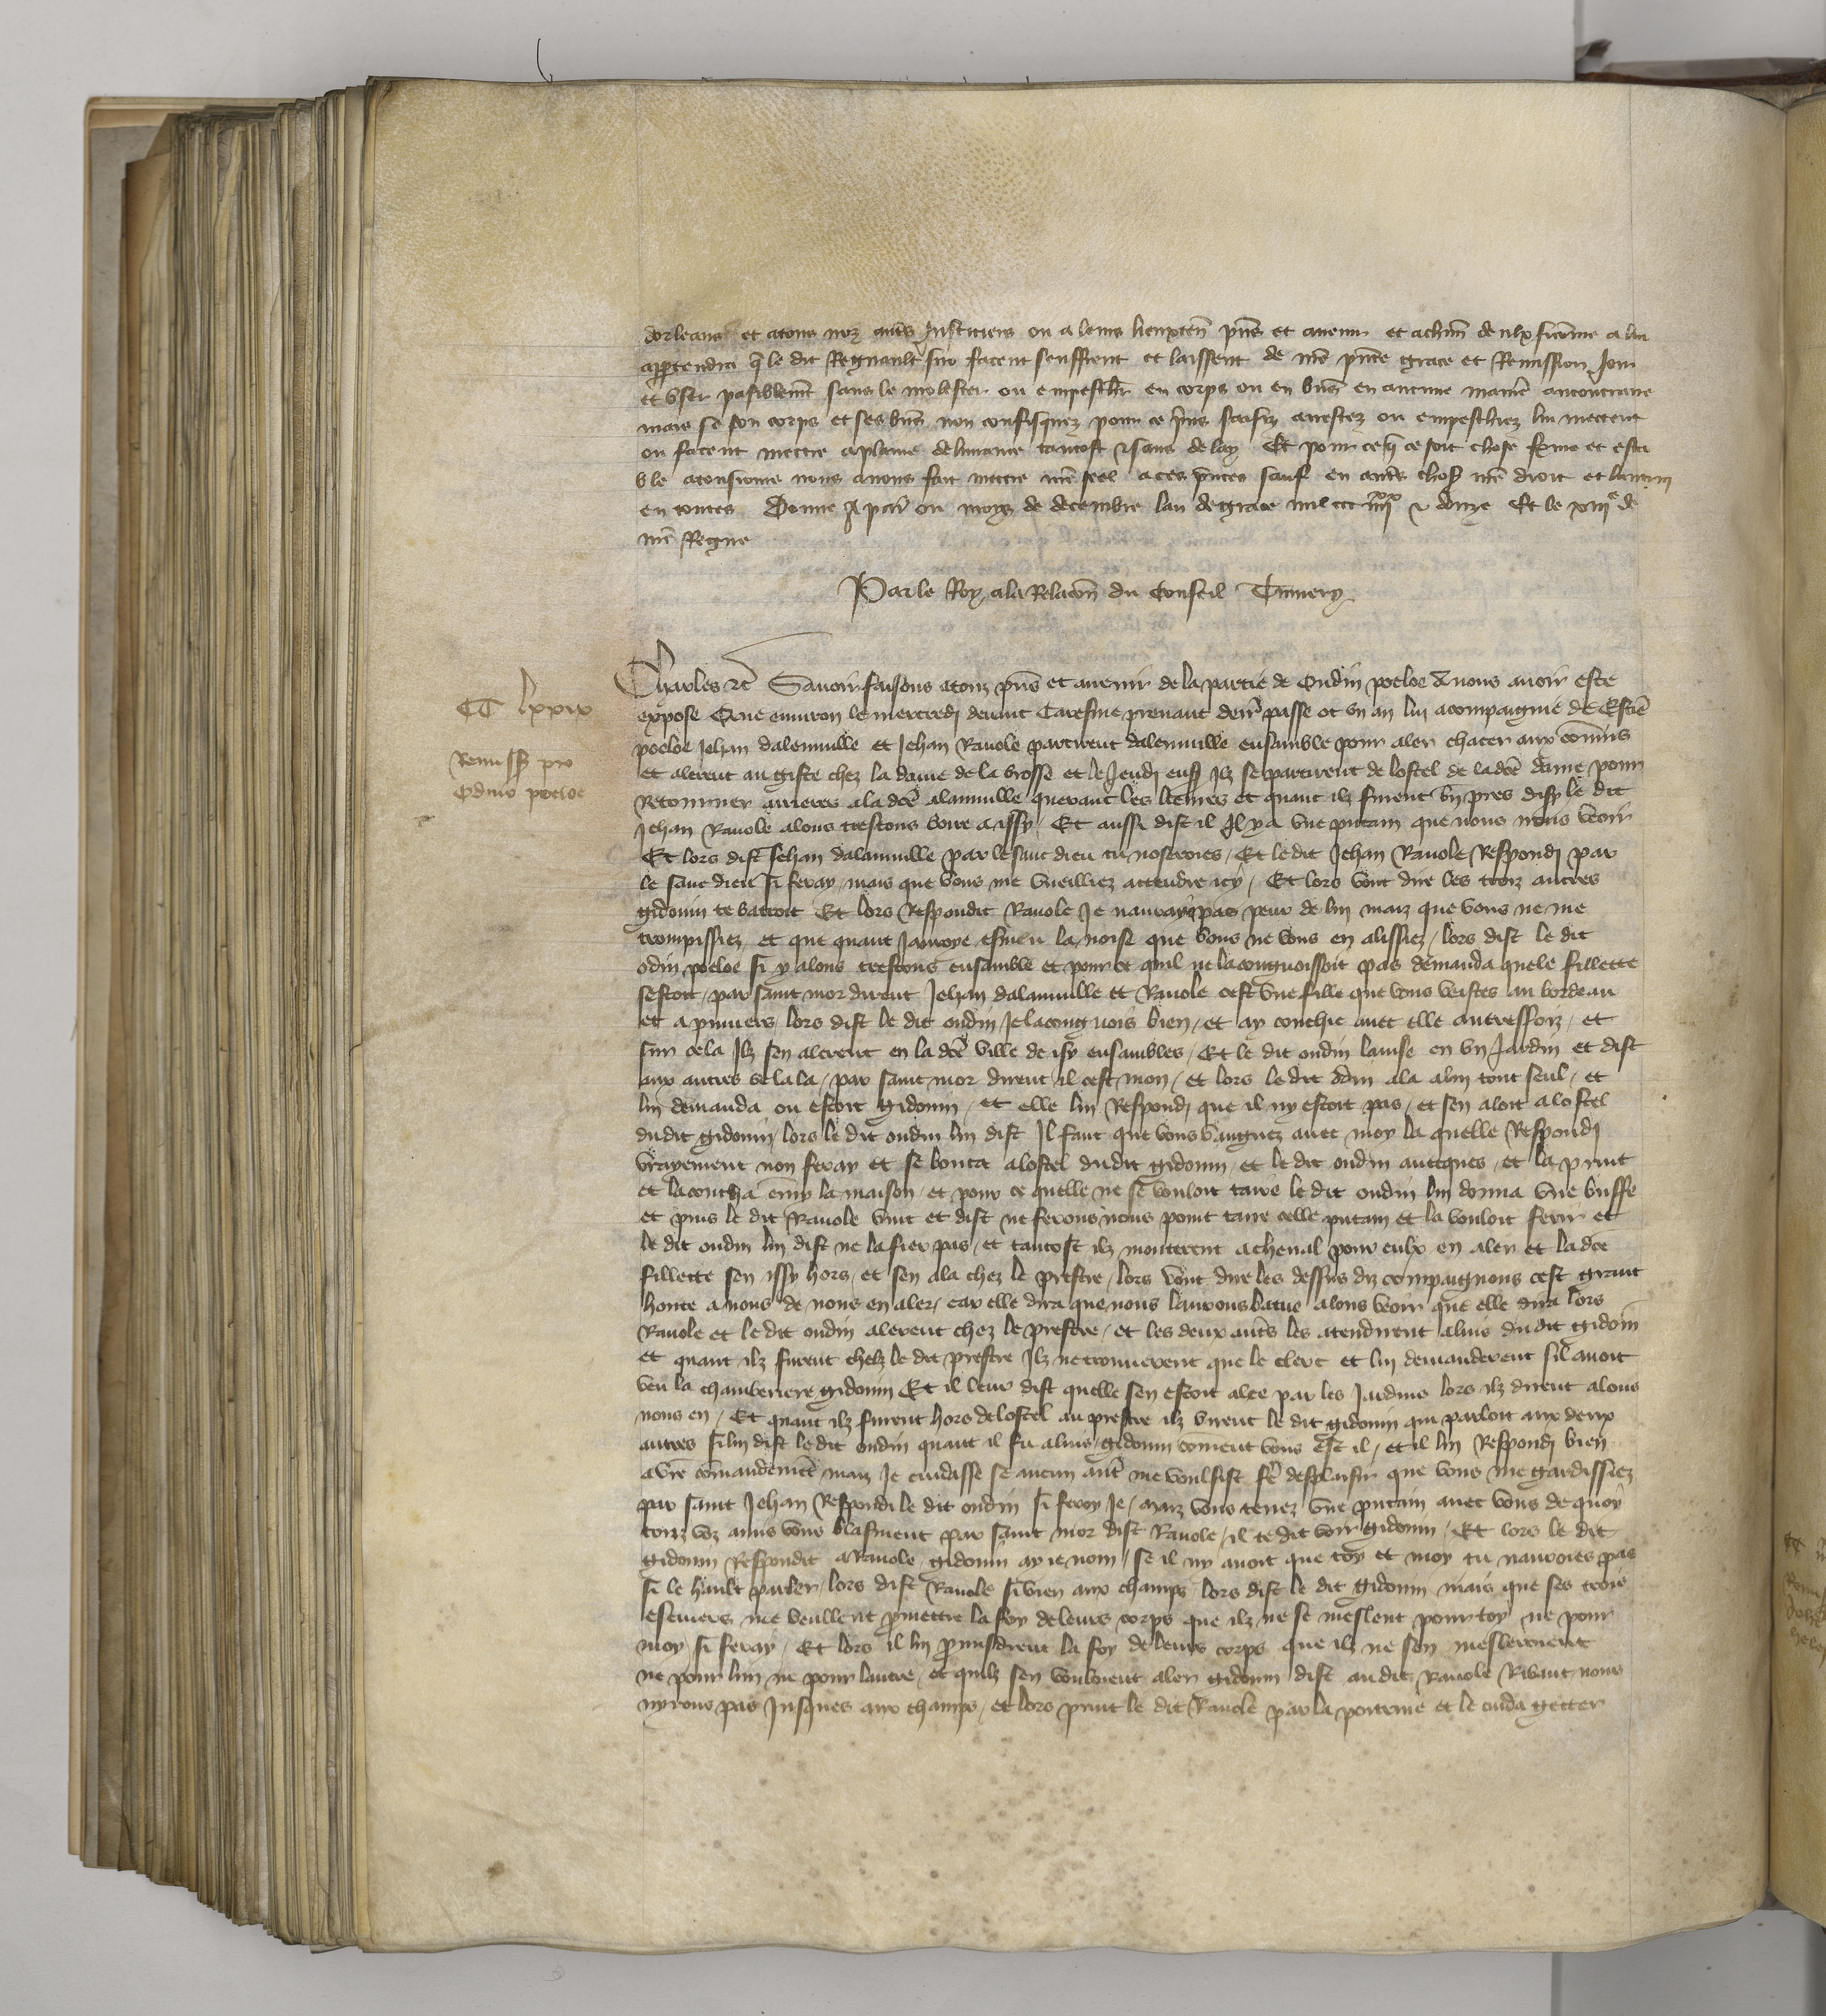 dorleans et a tous noz autrs Justiciers ou a leurs lieuxten pns et avenir et a chun deulx si come a lui
appartendra q le dit Regnault facent seuffrent et laissent de nre pnte grace et Remission Joir
et user paisiblemt sans le molester ou empeschr en corps ou en biens en aucune maniere au contraire
mais se son corps et ses biens non confisquez pour ce prins saisiz arrestez ou empeschiez lui mettent
ou facent mettre a plaine delivrance tantost et sans delay Et pour ce q ce soit chose ferme et esta
ble a tousiours nous avons fait mettre nre seel a ces pntes sauf en autrs choses nre droit et lautruy
en toutes Donne A par ou moys de decembre lan de grace mil ccc iiiixx et donze Et le xiiie de
nre Regne
Par le Roy a la Relacon du Conseil
CC lxxix
Remissio pro
Odino poeloe
Charles etc Savoir faisons a touz pns et avenir de la partie de Oudin poeloe A nous avoir este
expose Que environ le mercredi devant Caresme prenant derr passe ot un an lui acompaignie de Estie
poeloe Jehan dalemville et Jehan Ravole partirent dalemville ensamble pour aler chacer aux connins
et alerent au giste chez la dame de la brosse et le Jeudi ens Ilz se partirent de lostel de ladce dame pour
Retourner arrieres a la dce alainville querant les lievres et quant ilz furent bn pres disy le dit
Jehan Ravole alons trestous boire a issy / Et aussi dist il Il y a une putain que nous irons veoir
Et lors dist Jehan dalainville par le sanc dieu tu noseroies / Et le dit Jehan Ravole Respondi par
le sanc dieu si feray / mais que vous me vueilliez attendre icy / Et lors vont dire les troiz autres
gidouin te batroit Et lors Respondit Ravole Je nauray pas peur de lui maiz que vous ne me
trompissiez et que quant Jauroye esmeu la noise que vous ne vous en alissiez / lors dist le dit
odin poeloe si y alons trestous ensamble et pour ce quil ne la congnoissoit pas demanda quele fillette
sestoit / par saint mor dirent Jehan dalainville et Ravole cest une fille que vous veistes au bordeau
et a piviers / lors dist le dit oudin Je la congnois bien / et ay couchie avec elle autresfoiz / et
sur cela Ilz sen alerent en la dce ville de isy ensambles / Et le dit oudin lavise en un Jardin et dist
aux autres ve la la / par saint mor dirent il cest mon / et lors le dit odin ala a lui tout seul / et
lui demanda ou estoit gidouin / et elle lui Respondi que il ny estoit pas / et sen aloit a lostel
dudit gidouin / lors le dit oudin lui dist Il faut que vous vaingnez avec moy la quelle Respondi
vrayement non feray et se bouta a lostel dudit gidouin / et le dit oudin avecques / et la print
et la coucha emy la maison / et pour ce quelle ne se vouloit taire le dit oudin lui donna une buffe
et puis le dit Ravole vint et dist ne ferons nous point taire celle putain et la vouloit ferir et
le dit oudin lui dist ne la fier pas / et tantost ilz monterent a cheval pour eulx en aler et la dce
fillette sen issy hors / et sen ala chez le prestre / lors vont dire les dessus diz compaignons cest grant
honte a nous de nous en aler / car elle dira que nous laurons batue alons veoir que elle dira lors
Ravole et le dit oudin alerent chez le prestre / et les deux autrs les atendirent a luis dudit gidoin
et quant ilz furent chelz le dit prestre Ilz ne trouverent que le clerc et lui demanderent sil avoit
veu la chamberiere gidouin Et il leur dist quelle sen estoit alee par les Jardins lors ilz dirent alons
nous en / Et quant ilz furent hors de lostel au prestre ilz virent le dit gidouin qui parloit aux deux
autres si lui dist le dit oudin quant il fu a luis / gidouin coment vous est il / et il lui Respondi bien
a vre comandemet maiz Je cuidasse se aucun autr me voulsist fere desplaisir que vous me gardissiez
par saint Jehan Respondi le dit oudin si feroy Je / maiz vous tenez une putain avec vous de quoy
touz voz amis vous blasment par saint mor dist Ravole / il te dit voir gidouin / Et lors le dit
gidouin Respondit a Ravole gidouin ay ie nom / se il ny avoit que toy et moy tu nauroies pas
si le hault parler / lors dist Ravole si vien aux champs lors dist le dit gidouin mais que ses trois
escuiers me veullent promettre la foy de leurs corps que ilz ne se meslent pour toy ne pour
moy si feray / Et lors il lui promisdrent la foy de leurs corps que ilz ne sen mesleroient
ne pour lun ne pour lautre / et quilz sen vouloient aler gidouin dist au dit Ravole Ribaut nous
nyrons pas Jusques aux champs / et lors print le dit Ravole par la poitrine et le cuida getter